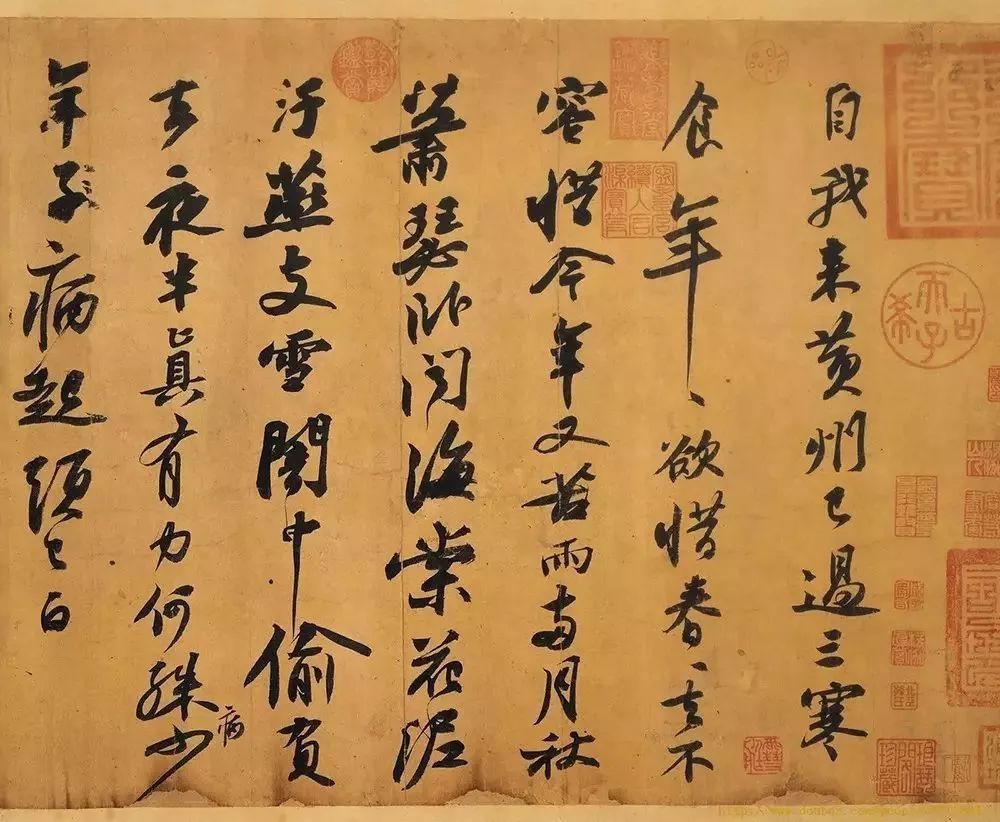 自我来黄州已過三寒
食年、欲惜春、去不
容惜今年又苦雨兩月秋
蕭瑟卧聞海棠花泥
汙燕支雪闇中偷負
去夜半真有力何殊少
病
年子病起頭已白
古希天子
乾隆鑑賞